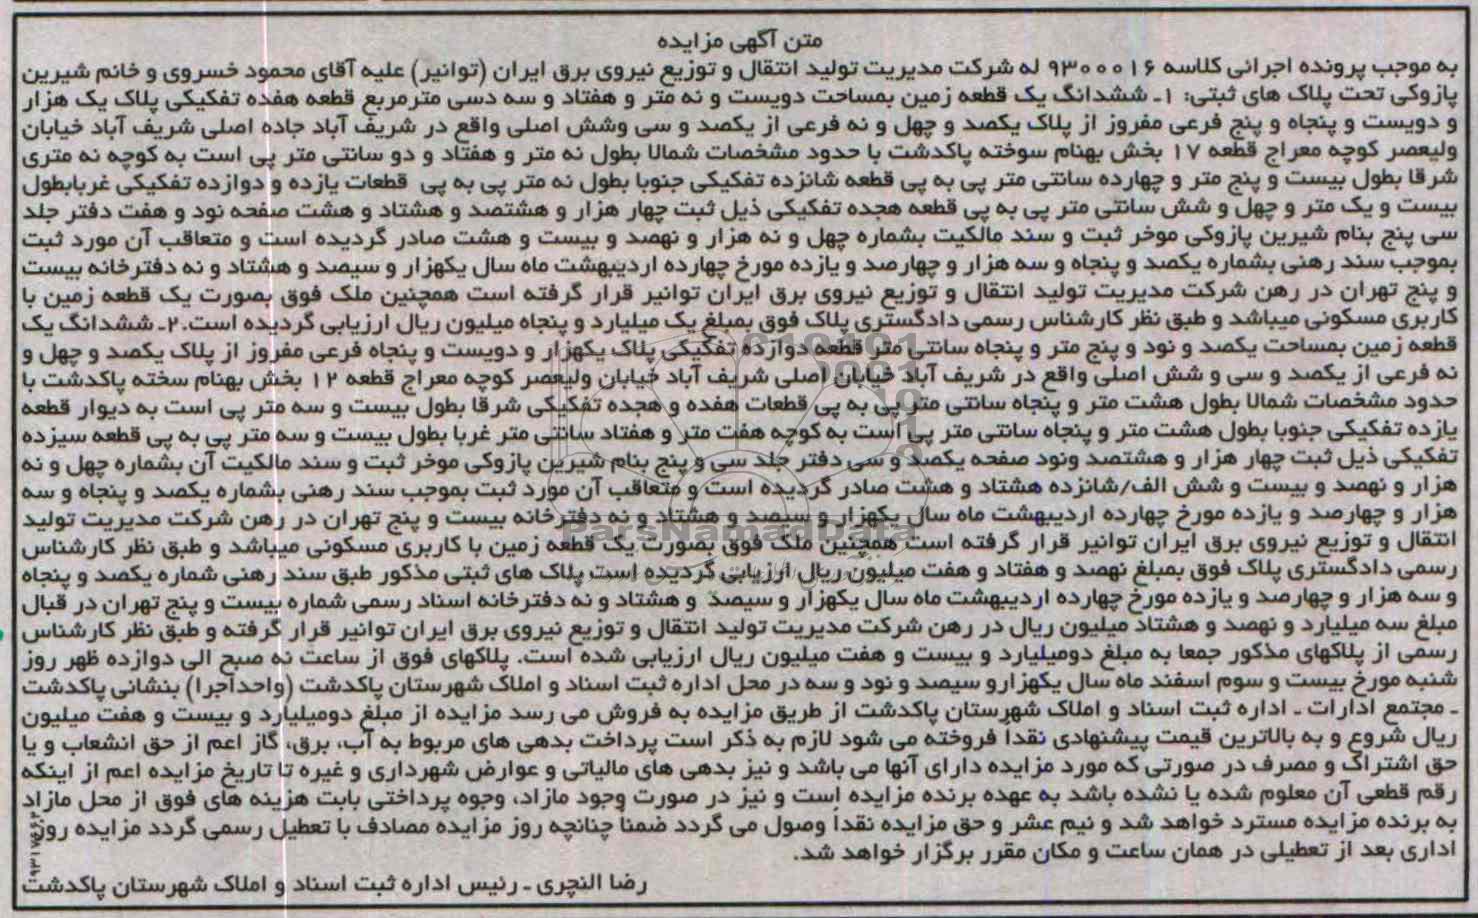 متن آگهی مزایده
به موجب پرونده اجرائی کلاسه ۹۳۰۰۰۱۶ له شرکت مدیریت تولید انتقال و توزیع نیروی برق ایران (توانیر) علیه آقای محمود خسروی و خانم شیرین
پازوکی تحت پلاک های ثبتی: ۱ـ ششدانگ یک قطعه زمین بمساحت دویست و نه متر و هفتاد و سه دسی مترمربع قطعه هفده تفکیکی پلاک یک هزار
و دویست و پنجاه و پنج فرعی مفروز از پلاک یکصد و چهل و نه فرعی از یکصد و سی وشش اصلی واقع در شریف آباد جاده اصلی شریف آباد خیابان
ولیعصر کوچه معراج قطعه ۱۷ بخش بهنام سوخته پاکدشت با حدود مشخصات شمالا بطول نه متر و هفتاد و دو سانتی متر پی است به کوچه نه متری
شرقا بطول بیست و پنج متر و چهارده سانتی متر پی به پی قطعه شانزده تفکیکی جنوبا بطول نه متر پی به پی قطعات یازده و دوازده تفکیکی غربابطول
بیست و یک متر و چهل و شش سانتی متر پی به پی قطعه هجده تفکیکی ذیل ثبت چهار هزار و هشتصد و هشتاد و هشت صفحه نود و هفت دفتر جلد
سی پنج بنام شیرین پازوکی موخر ثبت و سند مالکیت بشماره چهل و نه هزار و نهصد و بیست و هشت صادر گردیده است و متعاقب آن مورد ثبت
بموجب سند رهنی بشماره یکصد و پنجاه و سه هزار و چهارصد و یازده مورخ چهارده اردیبهشت ماه سال یکهزار و سیصد و هشتاد و نه دفترخانه بیست
و پنج تهران در رهن شرکت مدیریت تولید انتقال و توزیع نیروی برق ایران توانیر قرار گرفته است همچنین ملک فوق بصورت یک قطعه زمین با
کاربری مسکونی میباشد و طبق نظر کارشناس رسمی دادگستری پلاک فوق بمبلغ یک میلیارد و پنجاه میلیون ریال ارزیابی گردیده است.۲ـ ششدانگ یک
قطعه زمین بمساحت یکصد و نود و پنج متر و پنجاه سانتی متر قطعه دوازده تفکیکی پلاک یکهزار و دویست و پنجاه فرعی مفروز از پلاک یکصد و چهل و
نه فرعی از یکصد و سی و شش اصلی واقع در شریف آباد خیابان اصلی شریف آباد خیابان ولیعصر کوچه معراج قطعه ۱۲ بخش بهنام سخته پاکدشت با
حدود مشخصات شمالا بطول هشت متر و پنجاه سانتی متر پی به پی قطعات هفده و هجده تفکیکی شرقا بطول بیست و سه متر پی است به دیوار قطعه
یازده تفکیکی جنوبا بطول هشت متر و پنجاه سانتی متر پی است به کوچه هفت متر و هفتاد سانتی متر غربا بطول بیست و سه متر پی به پی قطعه سیزده
تفکیکی ذیل ثبت چهار هزار و هشتصد ونود صفحه یکصد و سی دفتر جلد سی و پنج بنام شیرین پازوکی موخر ثبت و سند مالکیت آن بشماره چهل و نه
هزار و نهصد و بیست و شش الف/شانزده هشتاد و هشت صادر گردیده است و متعاقب آن مورد ثبت بموجب سند رهنی بشماره یکصد و پنجاه و سه
هزار و چهارصد و یازده مورخ چهارده اردیبهشت ماه سال یکهزار و سیصد و هشتاد و نه دفترخانه بیست و پنج تهران در رهن شرکت مدیریت تولید
انتقال و توزیع نیروی برق ایران توانیر قرار گرفته است همچنین ملک فوق بصورت یک قطعه زمین با کاربری مسکونی میباشد و طبق نظر کارشناس
رسمی دادگستری پلاک فوق بمبلغ نهصد و هفتاد و هفت میلیون ریال ارزیابی گردیده است پلاک های ثبتی مذکور طبق سند رهنی شماره یکصد و پنجاه
و سه هزار و چهارصد و یازده مورخ چهارده اردیبهشت ماه سال یکهزار و سیصد و هشتاد و نه دفترخانه اسناد رسمی شماره بیست و پنج تهران در قبال
مبلغ سه میلیارد و نهصد و هشتاد میلیون ریال در رهن شرکت مدیریت تولید انتقال و توزیع نیروی برق ایران توانیر قرار گرفته و طبق نظر کارشناس
رسمی از پلاکهای مذکور جمعا به مبلغ دومیلیارد و بیست و هفت میلیون ریال ارزیابی شده است. پلاکهای فوق از ساعت نه صبح الی دوازده ظهر روز
شنبه مورخ بیست و سوم اسفند ماه سال یکهزارو سیصد و نود و سه در محل اداره ثبت اسناد و املاک شهرستان پاکدشت (واحداجرا) بنشانی پاکدشت
ـ مجتمع ادارات ـ اداره ثبت اسناد و املاک شهرستان پاکدشت از طریق مزایده به فروش می رسد مزایده از مبلغ دومیلیارد و بیست و هفت میلیون
ریال شروع و به بالاترین قیمت پیشنهادی نقداً فروخته می شود لازم به ذکر است پرداخت بدهی های مربوط به آب، برق، گاز اعم از حق انشعاب و یا
حق اشتراک و مصرف در صورتی که مورد مزایده دارای آنها می باشد و نیز بدهی های مالیاتی و عوارض شهرداری و غیره تا تاریخ مزایده اعم از اینکه
رقم قطعی آن معلوم شده یا نشده باشد به عهده برنده مزایده است و نیز در صورت وجود مازاد، وجوه پرداختی بابت هزینه های فوق از محل مازاد
به برنده مزایده مسترد خواهد شد و نیم عشر و حق مزایده نقداً وصول می گردد ضمناً چنانچه روز مزایده مصادف با تعطیل رسمی گردد مزایده روز
اداری بعد از تعطیلی در همان ساعت و مکان مقرر برگزار خواهد شد.
رضا النچری ـ رئیس اداره ثبت اسناد و املاک شهرستان پاکدشت
ParsNamadData